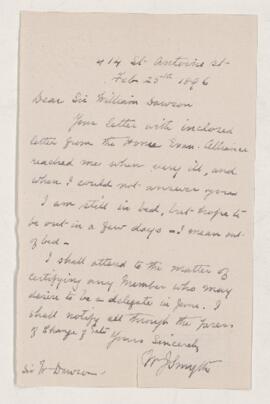 414 St. Antoine St.
Feb 25th 1896
Dear Sir William Dawson
Your letter with inclosed
letter from the Home Evan. Alliance
reached me when very ill, and
when I could not answer you
I am still in bed, but hope to
be out in a few days - I mean out
of bed -
I shall attend to the matter of
certifying any Member who may
desire to be a delegate in June. I
shall notify all through the Press
of Change of date
Yours Sincerely
W J Smyth
Sir W. Dawson